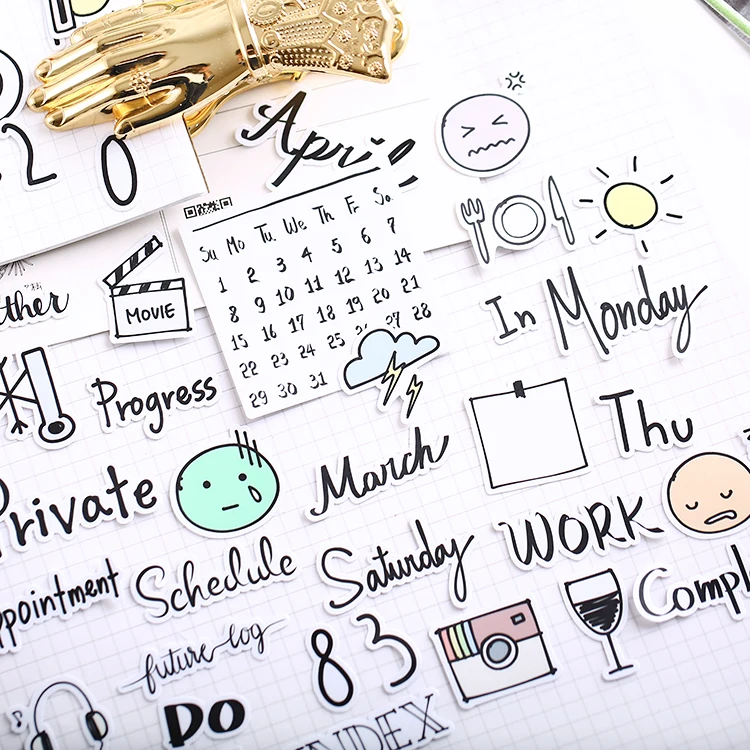 20
April
Su Mo Tu. We Th Fr Sa.
1 2 3 4 5 6 7
8 9 10 11 12 13 14
15 16 17 18 19 20 21
22 23 24 25 27 28
29 30 31
MOVIE
In Monday
Progress
Thu
Private
March
WORK
Appointment
Schedule
Saturday
future log
8 3
DO
INDEX